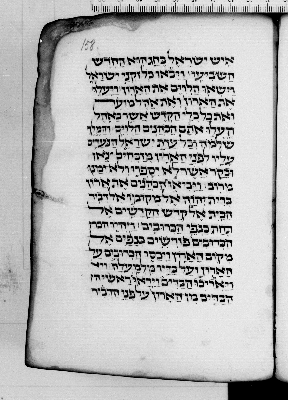 158
איש ישראל בחג הוא החדש
השביעי ויבאו כל זקני ישראל
וישאו הלוים את הארון ויעלו
את הארון ואת אהל מועד
ואת כל כלי הקדש אשר באהל
העלו אתם הכהנים הלוים והמלך
שלמה וכל עדת ישראל הנועדים
עליו לפני הארון מזבחים צאן
ובקר אשר לא יספרו ולא ימנו
מרוב ויביאו הכהנים את ארון
ברית יהוה אל מקומו אל דביר
הבית אל קדש הקדשים אל
תחת כנפי הכרובים ויהיו הכרו
הכרובים פורשים כנפים על
מקום הארון ויכסו הכרובים על
הארון ועל בדיו מלמעלה
ויאריכו הבדים ויראו ראשי
הבדים מן הארון על פני הדביר